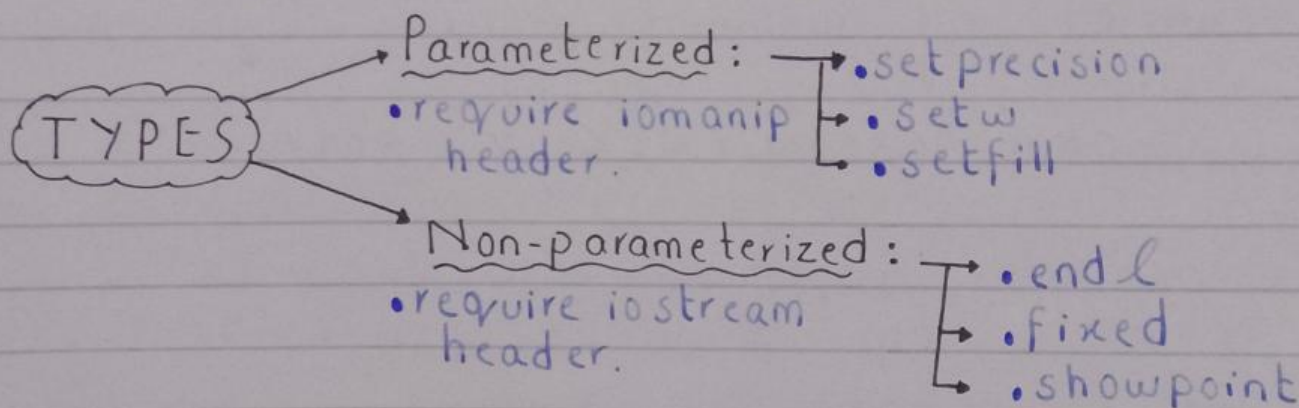 TYPES
Parameterized:
• require iomanip
header.
• setprecision
• setw
• setfill
Non-parameterized:
• require iostream
header.
• endl
• fixed
• showpoint